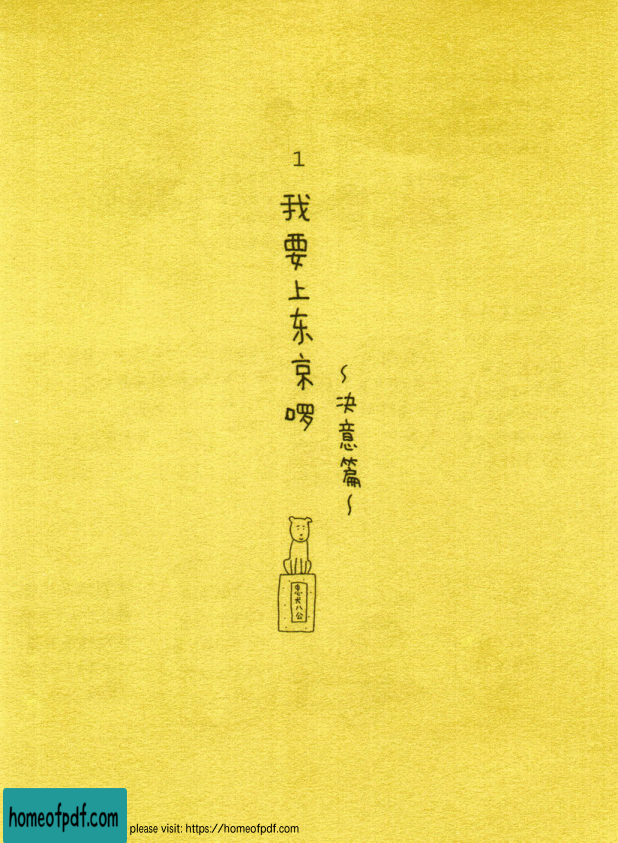 1
我要上东京啰
～决意篇～
忠犬八公
homeofpdf.com
please visit: https://homeofpdf.com